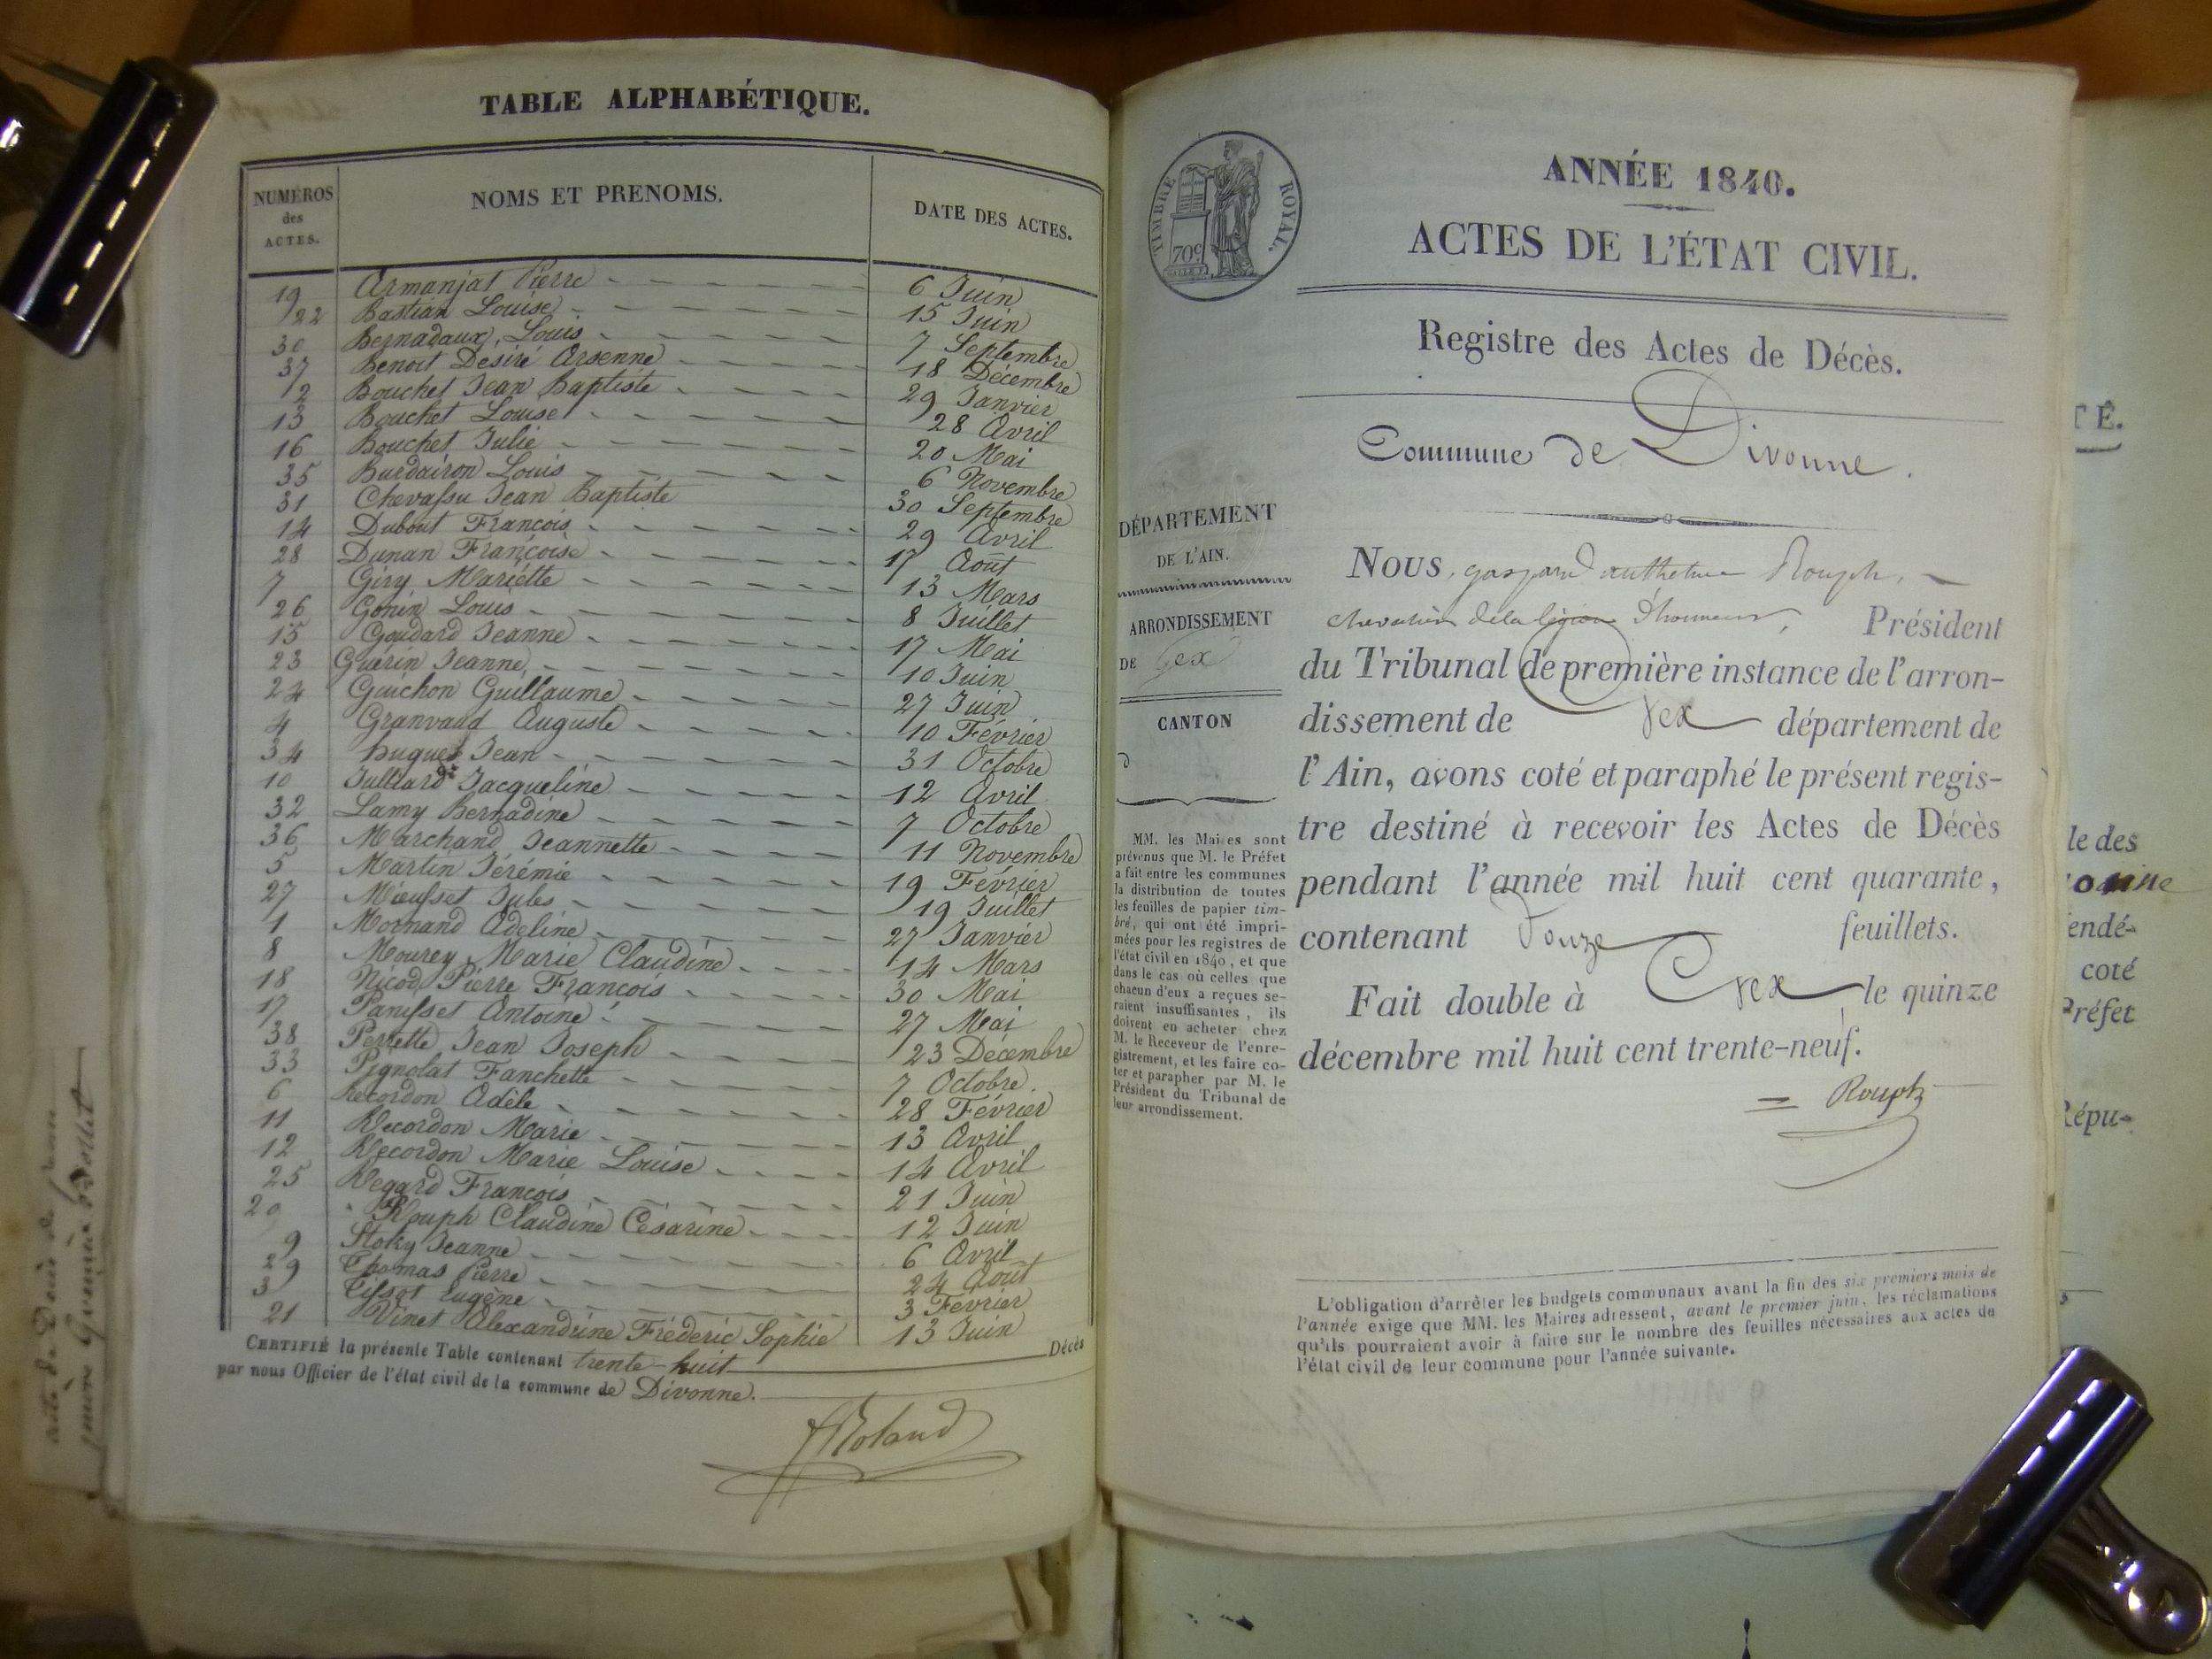 TABLE ALPHABÉTIQUE.
NUMÉROS des ACTES. NOMS ET PRENOMS. DATE DES ACTES.
19 Armanjat Pierre 6 Juin
22 Bastian Louise 15 Juin
30 Bernadaux, Louis 7 Septembre
37 Benoit Désiré Arsenne 18 Décembre
2 Bouchet Jean Baptiste 29 Janvier
13 Bouchet Louise 28 Avril
16 Bouchet Julie 20 Mai
35 Burdairon Louis 6 Novembre
31 Chevassu Jean Baptiste 30 Septembre
14 Dubout François 29 Avril
28 Dunan Françoise 17 Août
7 Giry Mariette 13 Mars
26 Gonin Louis 8 Juillet
15 Goudard Jeanne 17 Mai
23 Guérin Jeanne 10 Juin
24 Guichon Guillaume 27 Juin
4 Granvard Auguste 10 Février
34 Hugues Jean 31 Octobre
10 Julliard Jacqueline 12 Avril
32 Lamy Bernadine 7 Octobre
36 Marchand Jeannette 11 Novembre
5 Martin Jérémie 19 Février
27 Mieusset Jules 19 Juillet
1 Mornand Adeline 27 Janvier
8 Mourey Marie Claudine 14 Mars
18 Nicod Pierre François 30 Mai
17 Panisset Antoine 27 Mai
38 Perrette Jean Joseph 23 Décembre
33 Pignolat Fanchette 7 Octobre.
6 Recordon Adèle 28 Février
11 Recordon Marie 13 Avril
12 Recordon Marie Louise 14 Avril
25 Regard François 21 Juin
20 Rouph Claudine Césarine 12 Juin
9 Stoky Jeanne 6 Avril
29 Thomas Pierre 24 Août
3 Tissot Eugène 3 Février
21 Vinet Alexandrine Fréderic Sophie 13 Juin
CERTIFIÉ la présente Table contenant trente-huit Décès
par nous Officier de l'état civil de la commune de Divonne.
Roland
TIMBRE ROYAL.
70c
ANNÉE 1840.
ACTES DE L'ÉTAT CIVIL.
Registre des Actes de Décès.
Commune de Divonne.
DÉPARTEMENT
DE L'AIN.
ARRONDISSEMENT
DE Gex
CANTON
MM. les Maires sont
prévenus que M. le Préfet
a fait entre les communes
la distribution de toutes
les feuilles de papier tim-
bré, qui ont été impri-
mées pour les registres de
l'état civil en 1840, et que
dans le cas où celles que
chacun d'eux a reçues se-
raient insuffisantes, ils
doivent en acheter chez
M. le Receveur de l'enre-
gistrement, et les faire co-
ter et parapher par M. le
Président du Tribunal de
leur arrondissement.
NOUS, gaspard anthelme Rouph,
chevalier de la légion d'honneur, Président
du Tribunal de première instance de l'arron-
dissement de Gex département de
l'Ain, avons coté et paraphé le présent regis-
tre destiné à recevoir les Actes de Décès
pendant l'année mil huit cent quarante,
contenant Douze feuillets.
Fait double à Gex le quinze
décembre mil huit cent trente-neuf.
Rouph
L'obligation d'arrêter les budgets communaux avant la fin des six premiers mois de
l'année exige que MM. les Maires adressent, avant le premier juin, les réclamations
qu'ils pourraient avoir à faire sur le nombre des feuilles nécessaires aux actes de
l'état civil de leur commune pour l'année suivante.
TÉ.
le des
endé-
coté
Préfet
Répu-